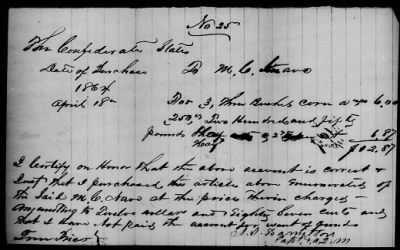 No 25
The Confederate States
Date of Purchase To M. C.
1864
April 18th For 3, Three Bushels corn a 6,00
250, Two Hundred and fifty
pounds 6,87
$12.87
I certify on Honor that the above account is correct &
Just that I purchased the articles above enumerated of
the said M. C. at the prices therein charged
amounting to Twelve dollars and Eighty Seven cents and
that I have not paid the account for want of funds
Hamilton
Capt & A.Q.M